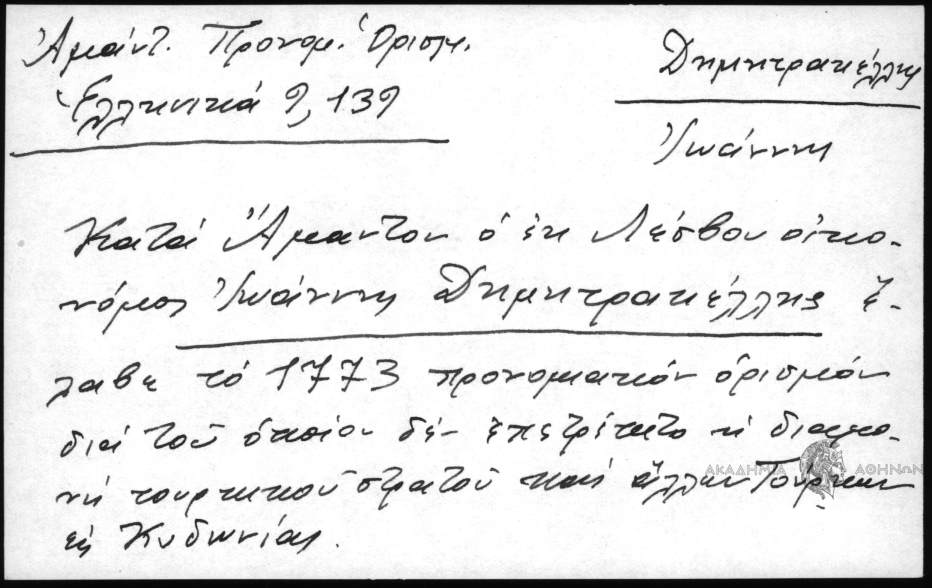 Ἀμάντ. Προνομ. Ὁρισμ.
Ἑλληνικά 9, 139
Δημητρακέλλης
Ἰωάννης
Κατά Ἄμαντον ὁ ἐκ Λέσβου οἰκο-
νόμος Ἰωάννης Δημητρακέλλης ἔ-
λαβε τό 1773 προνομιακόν ὁρισμόν
διά τοῦ ὁποίου δέν ἐπετρέπετο ἡ διαμο-
νή τουρκικοῦ στρατοῦ καί ἄλλων Τούρκων
εἰς Κυδωνίας.
ΑΚΑΔΗΜΙΑ ΑΘΗΝΩΝ